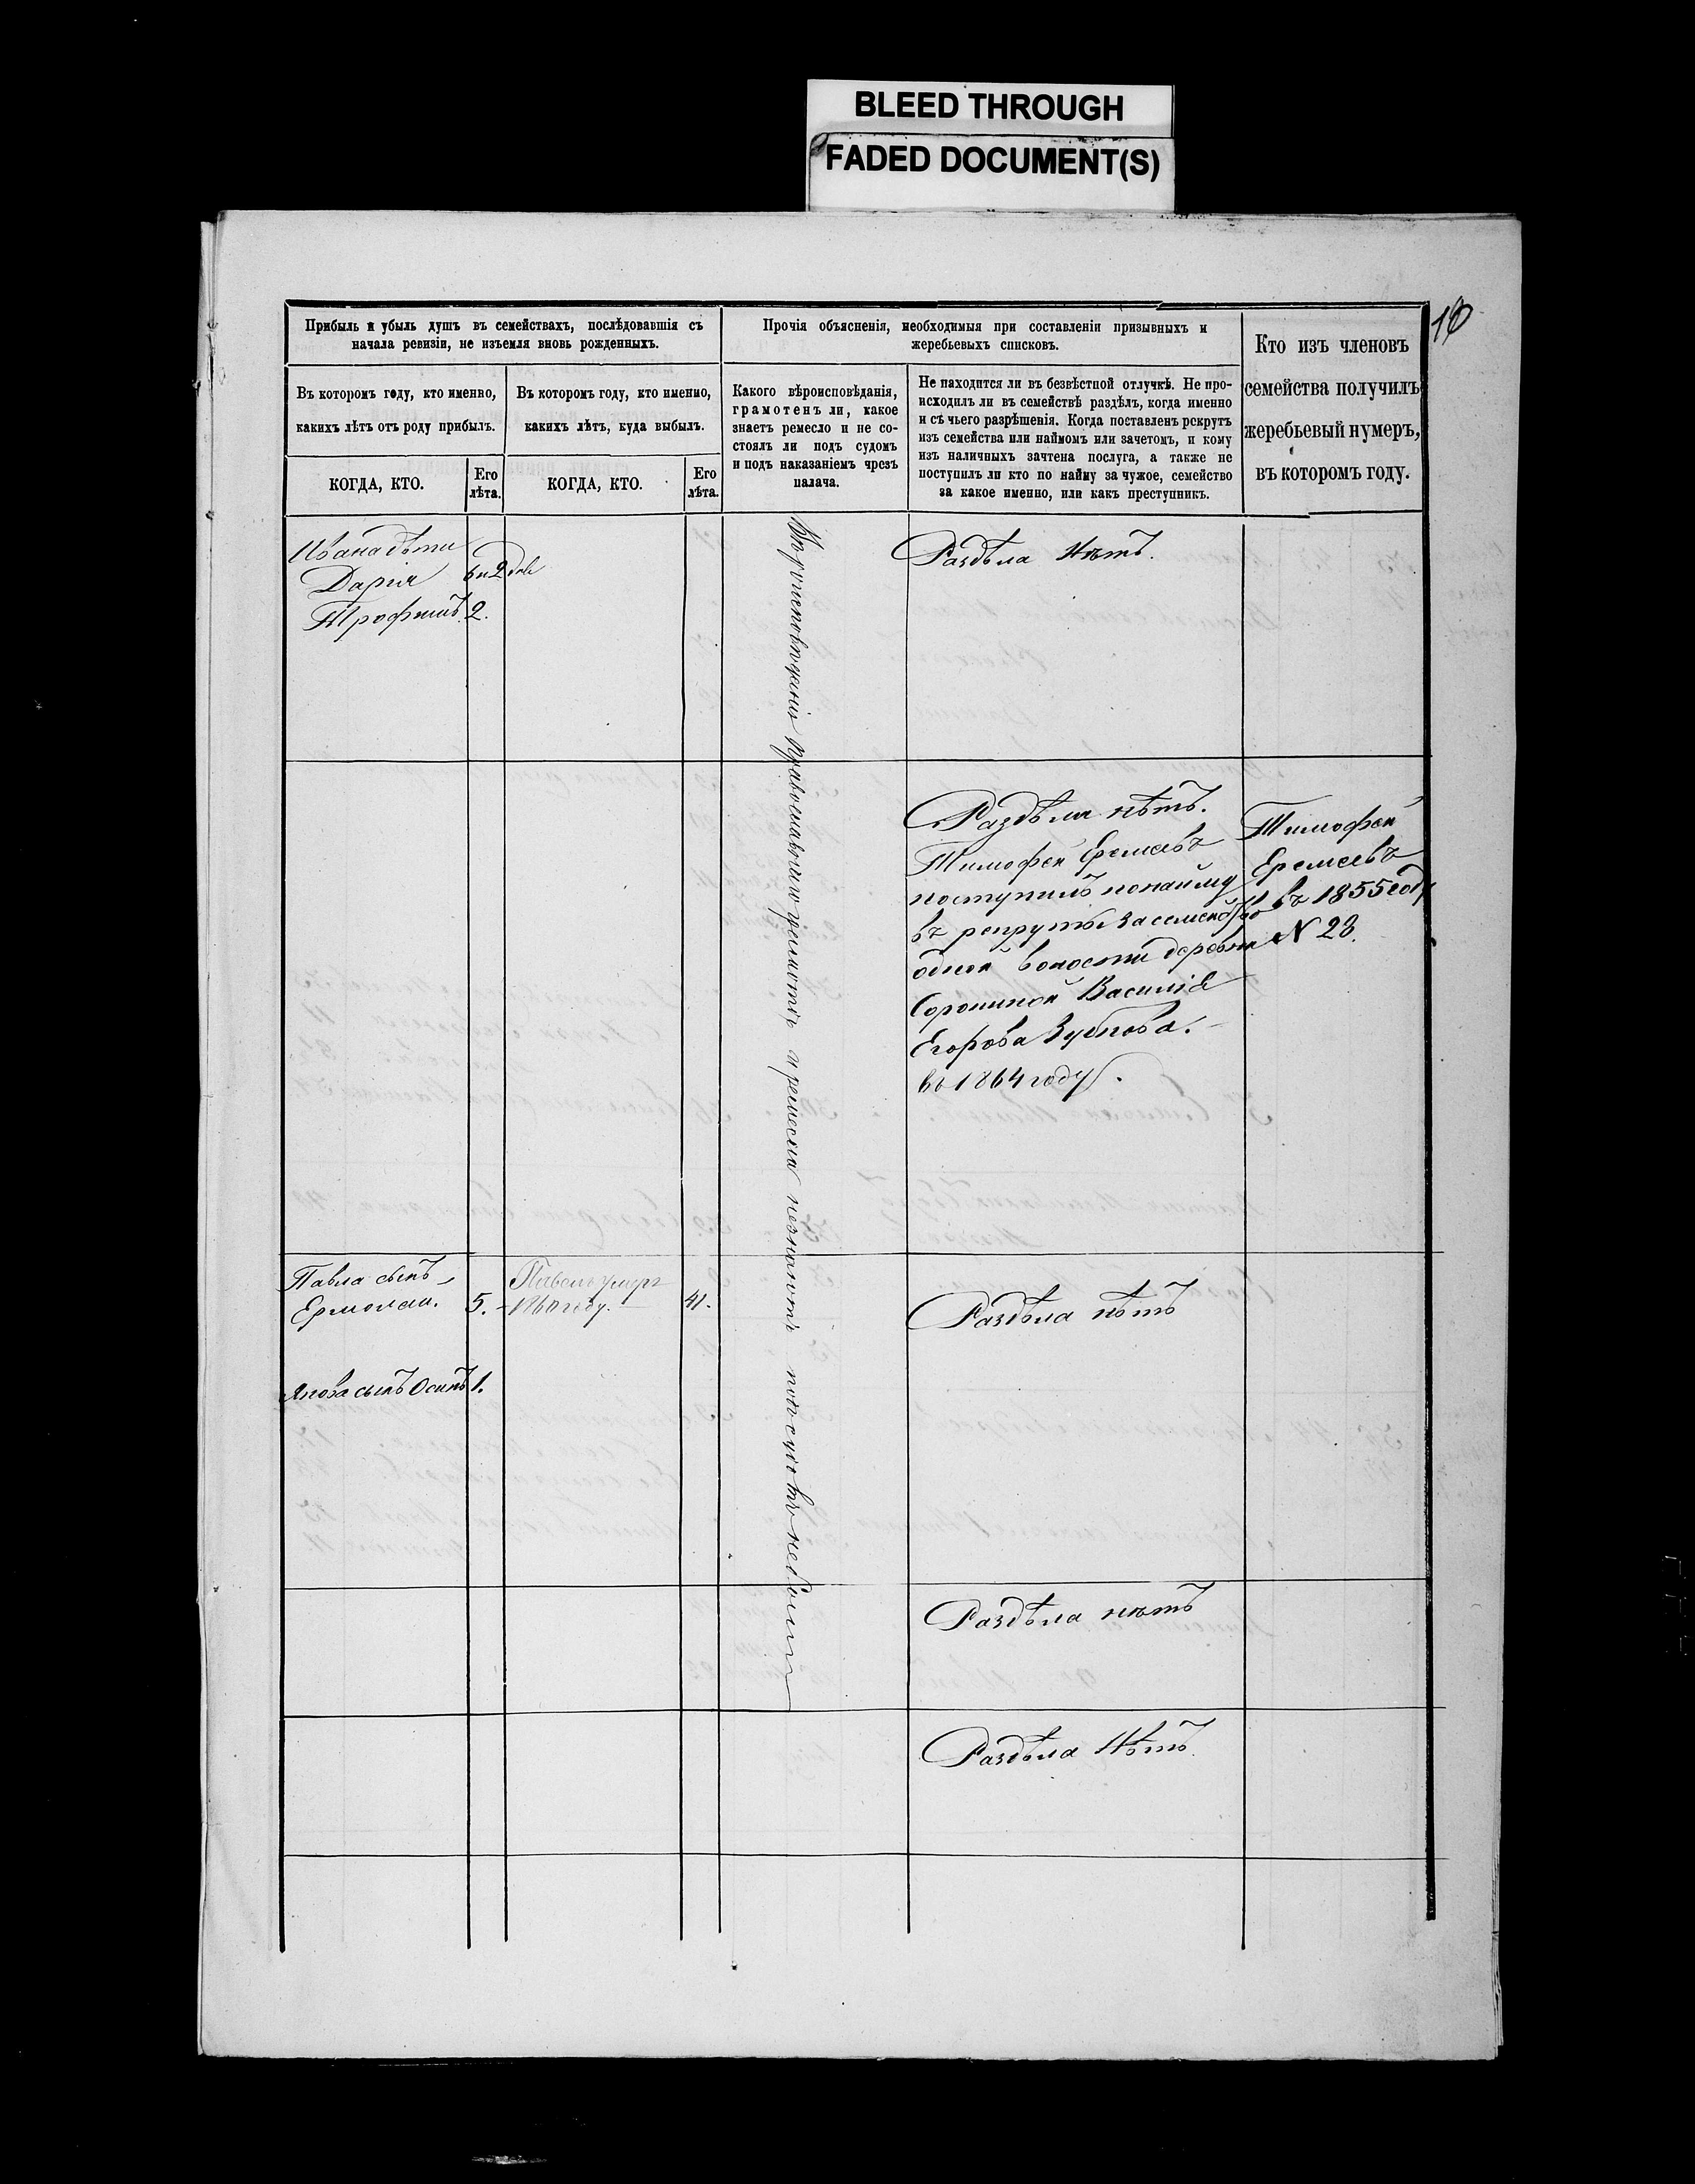 BLEED THROUGH
FADED DOCUMENT(S)
10
Прибыль и убыль душъ въ семействахъ, послѣдовавшія съ
начала ревизіи, не изъемля вновь рожденныхъ.
Въ которомъ году, кто именно,
какихъ лѣтъ отъ роду прибылъ.
КОГДА, КТО.
Его
лѣта.
Въ которомъ году, кто именно,
какихъ лѣтъ, куда выбылъ.
КОГДА, КТО.
Его
лѣта.
Прочія объясненія, необходимыя при составленіи призывныхъ и
жеребьевыхъ списковъ.
Какого вѣроисповѣданія,
грамотенъ ли, какое
знаетъ ремесло и не со-
стоялъ ли подъ судомъ
и подъ наказаніемъ чрезъ
палача.
Не находится ли въ безвѣстной отлучкѣ. Не про-
исходилъ ли въ семействѣ раздѣлъ, когда именно
и съ чьего разрѣшенія. Когда поставленъ рекрутъ
изъ семейства или наймомъ или зачетомъ, и кому
изъ наличныхъ зачтена послуга, а также не
поступилъ ли кто по найму за чужое, семейство
за какое именно, или какъ преступникъ.
Кто изъ членовъ
семейства получилъ
жеребьевый нумеръ,
въ которомъ году.
Ивана дѣти
Дарья
Трофимъ 2.
Раздѣла нѣтъ.
Вѣроисповѣданія православнаго грамотѣ и ремесла незнаютъ подъ судомъ небыли
Раздѣла нѣтъ.
Тимофей Еремеевъ
поступилъ понайму
въ рекруты за семейство
одной волости деревни
Сорокиной Василія
Егорова Зубкова.
въ 1864 году.
Тимофей
Еремеевъ
въ 1855 году
N 23.
Павла сынъ
Ермолай. 5.
Павелъ умеръ
1860 году. 41.
Раздѣла нѣтъ
Якова сынъ Осипъ 1.
Раздѣла нѣтъ
Раздѣла нѣтъ.